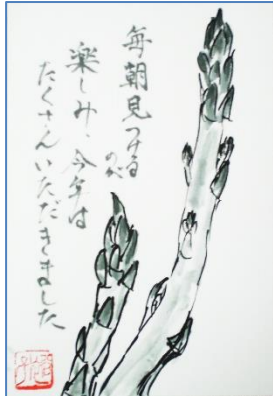 毎朝見つける
のが
楽しみ、今年は
たくさんいただきました